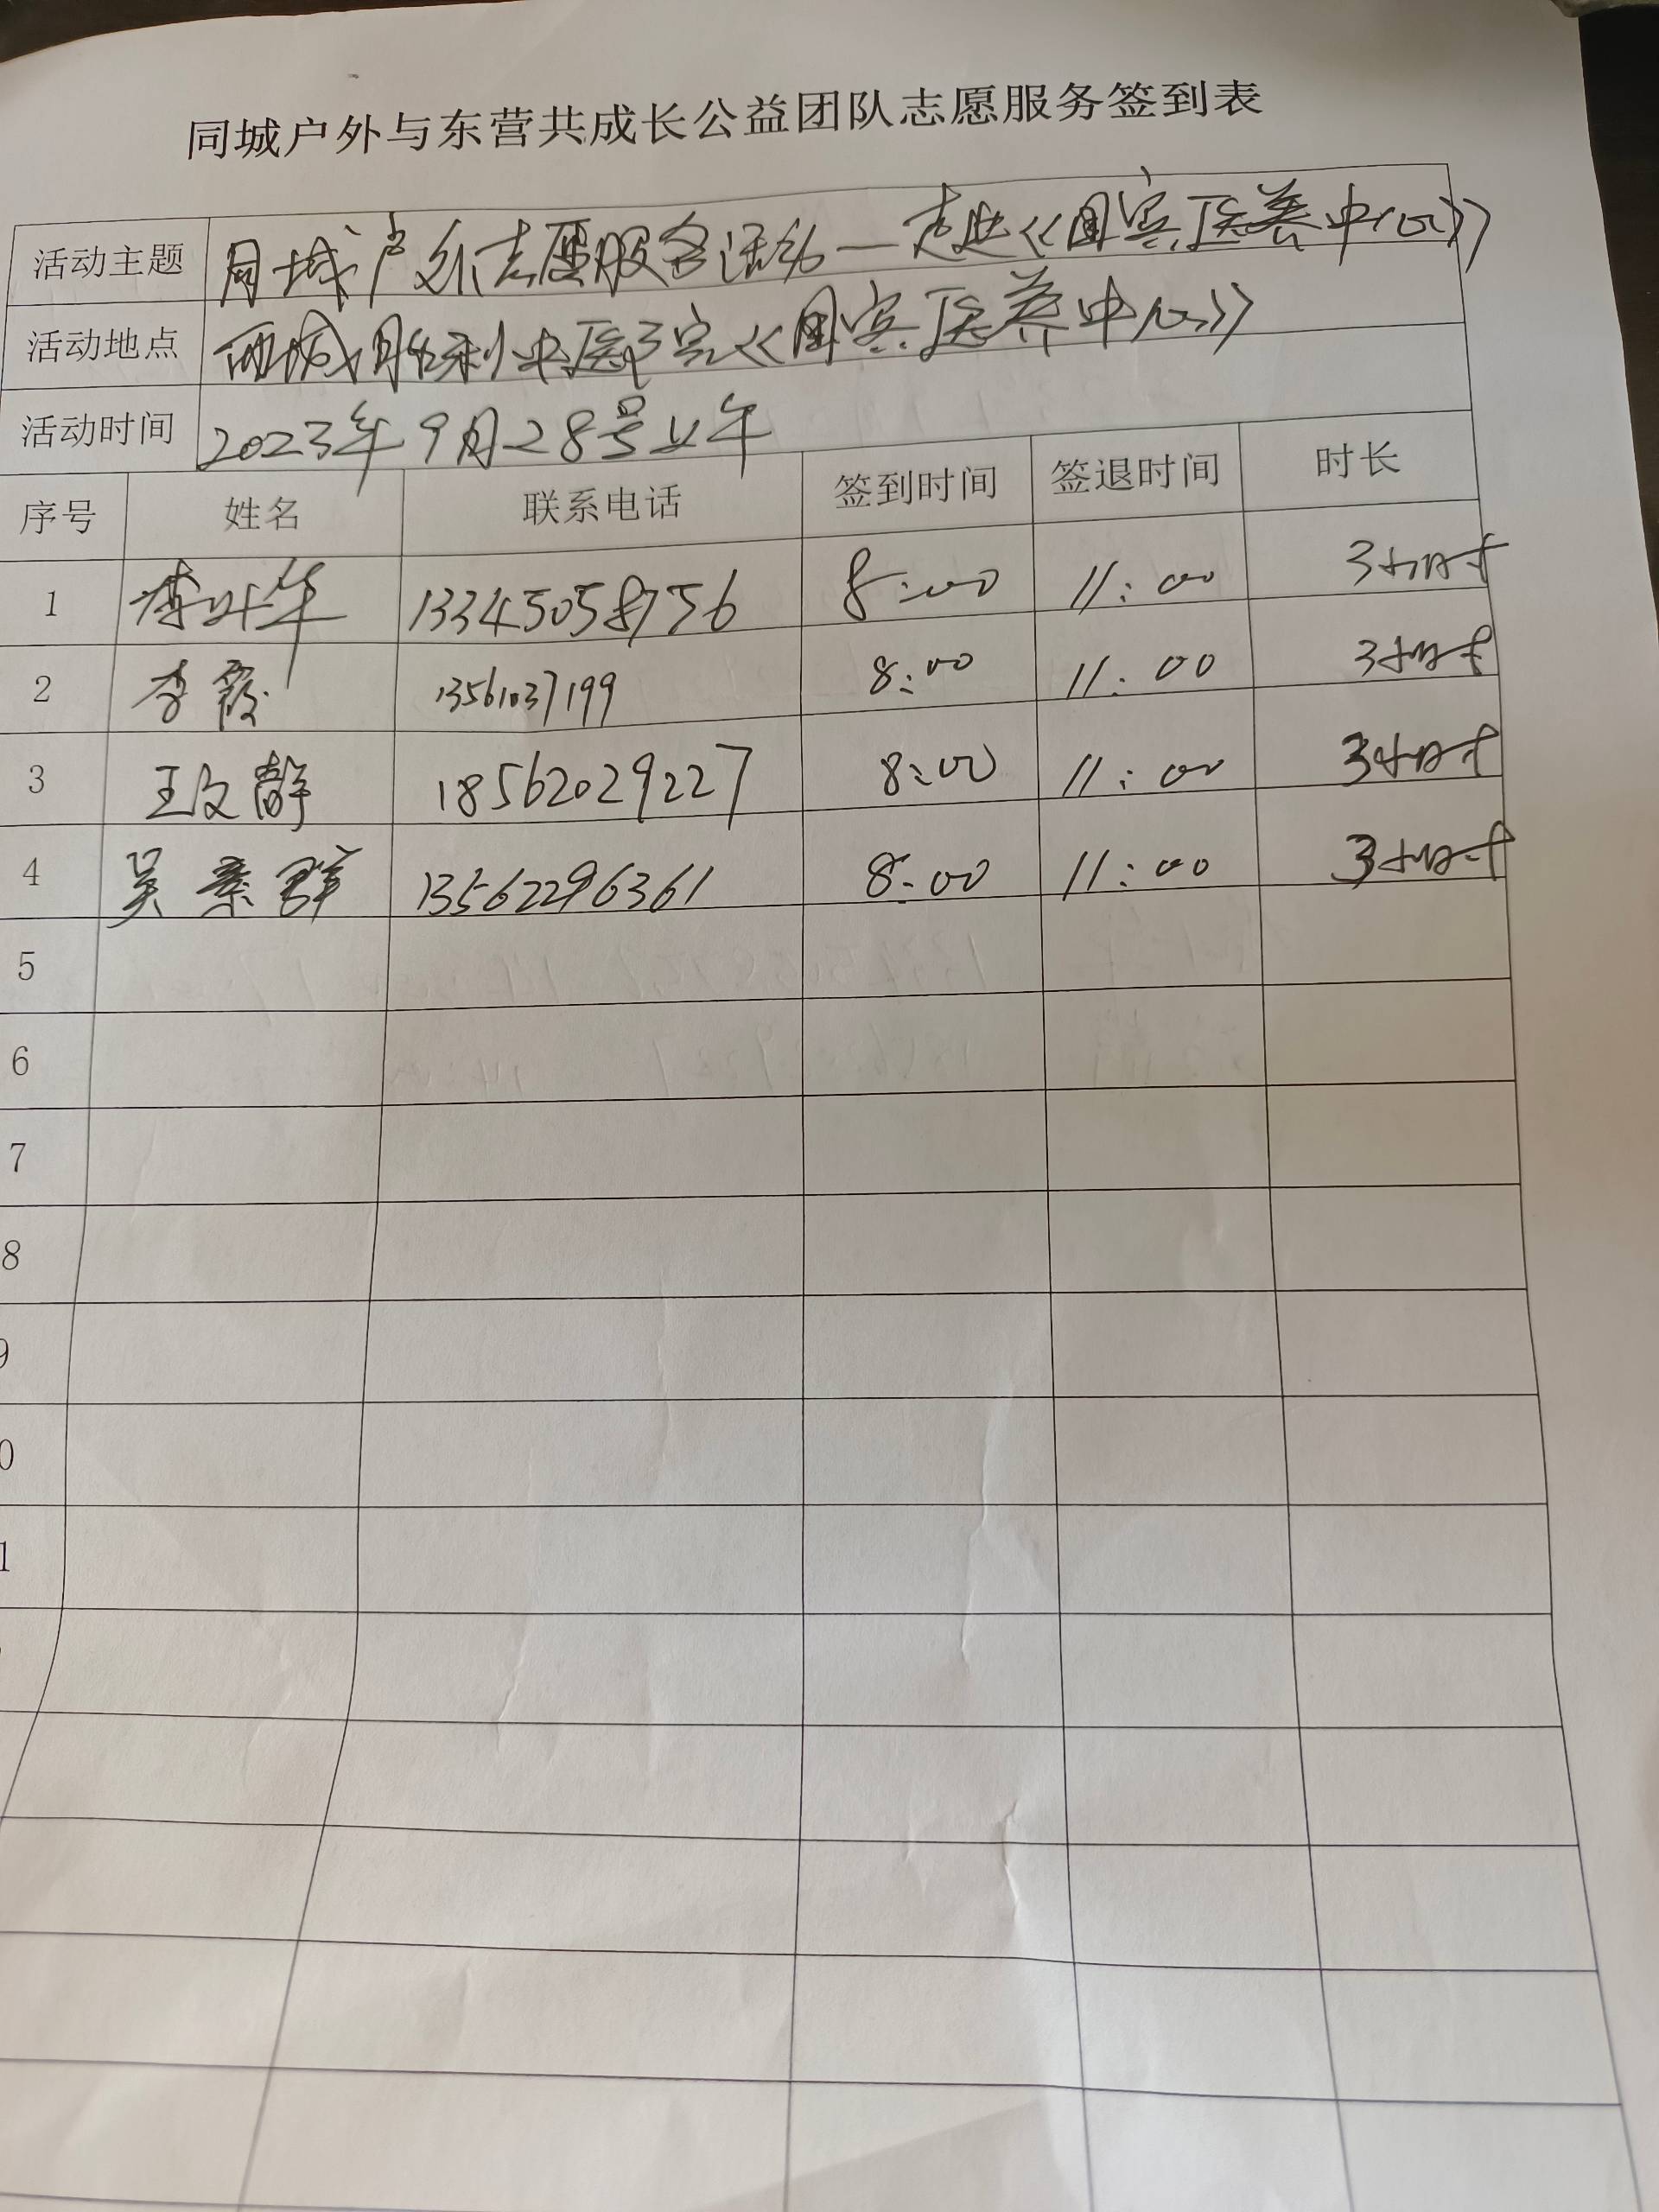 同城户外与东营共成长公益团队志愿服务签到表
活动主题 同城户外志愿服务活动—走进《国宾医养中心》
活动地点 西城胜利中医院《国宾医养中心》
活动时间 2023年9月28号上午
序号 姓名 联系电话 签到时间 签退时间 时长
1 13345058756 8:00 11:00 3小时
2 李霞 13561037199 8:00 11:00 3小时
3 王文静 18562029227 8:00 11:00 3小时
4 吴秦群 13562296361 8:00 11:00 3小时
5
6
7
8
9
0
1